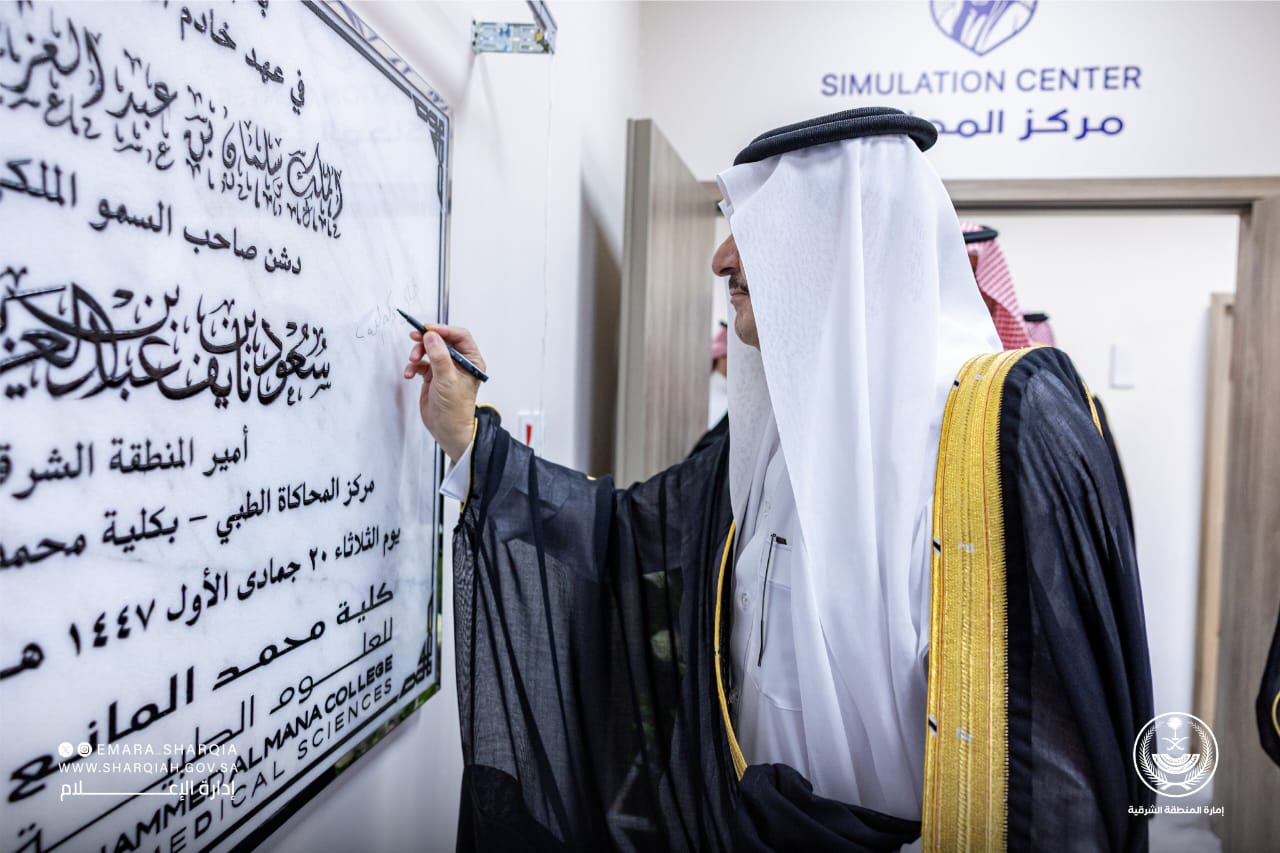 في عهد خادم
الملك سلمان بن عبد العز
دشن صاحب السمو الملكي
سعود بن نايف بن عبد العز
أمير المنطقة الشرق
مركز المحاكاة الطبي – بكلية محمد
يوم الثلاثاء ٢٠ جمادى الأول ١٤٤٧ هـ
كلية محمد المانع
للعلوم الط
HAMMED ALMANA COLLEGE
MEDICAL SCIENCES
SIMULATION CENTER
مركز المح
EMARA_SHARQIA
WWW.SHARQIAH.GOV.SA
إدارة الإعلام
إمارة المنطقة الشرقية